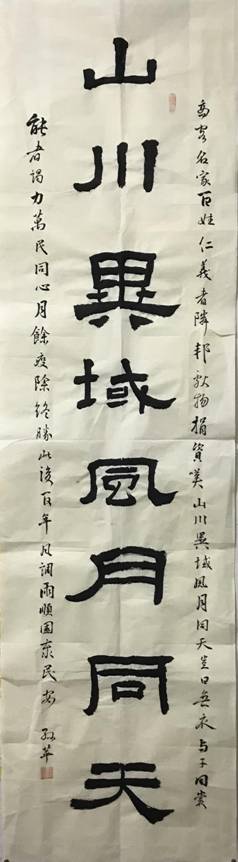 名家百姓仁義者隣邦獻物捐資山川異域風月同天豈曰無衣与子同裳
山川異域風月同天
能者竭力萬民同心月餘疫除終勝此後百年風調雨順國泰民安